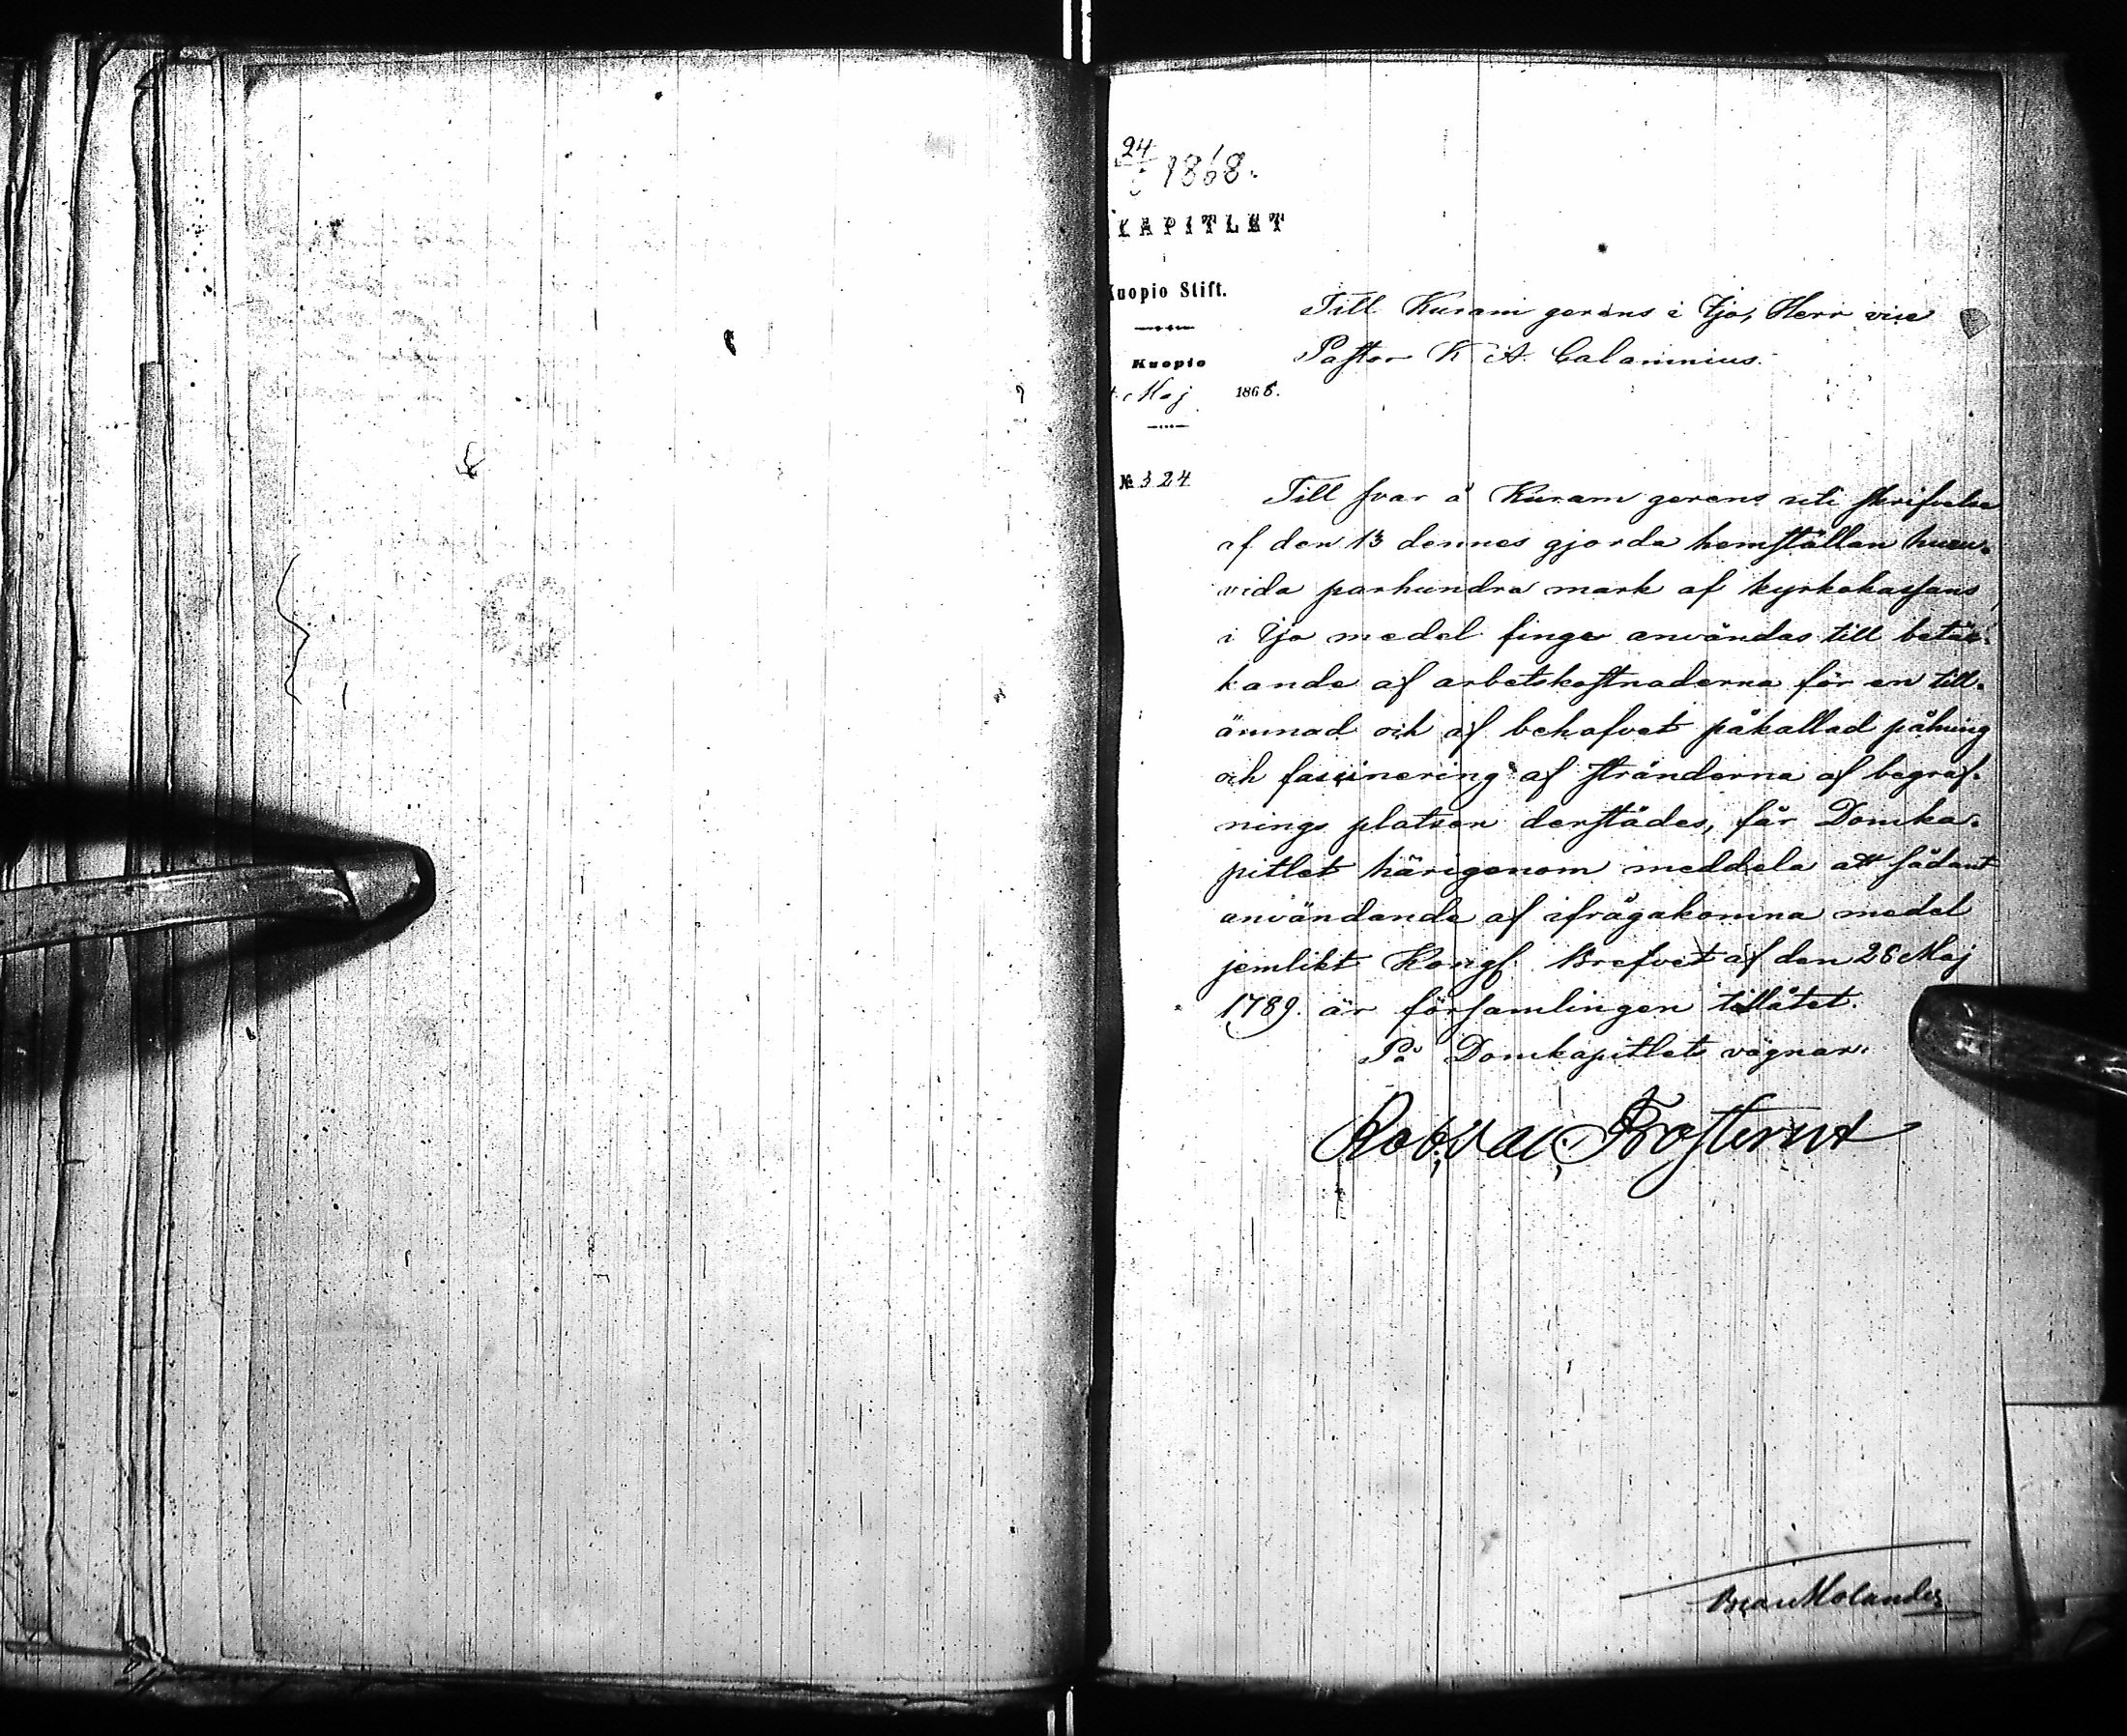 24
1868.
KAPITLET
Kuopio Stift.
Kuopio
Maj 1868.
№ 324
Till Kuram gerens i Ijo, Herr vice
Pastor K A Calamnius.
Till svar å Kuram gerens uti skrifvelse
af den 13 dennes gjorda hemställan huru-
vida parhundra mark af kyrkokassans
i Ijo medel finge användas till betäc-
kande af arbetskostnaderna för en till-
ämnad och af behofvet påkallad pålning
och fascinering af stränderna af begraf-
nings platsen derstädes, får Domka-
pitlet härigenom meddela att sådant
användande af ifrågakomna medel
jemlikt Kongl. Brefvet af den 26 Maj
1789. är församlingen tillåtet.
På Domkapitlets vägnar:
Rob: Val: Frosterus
Oscar Molander